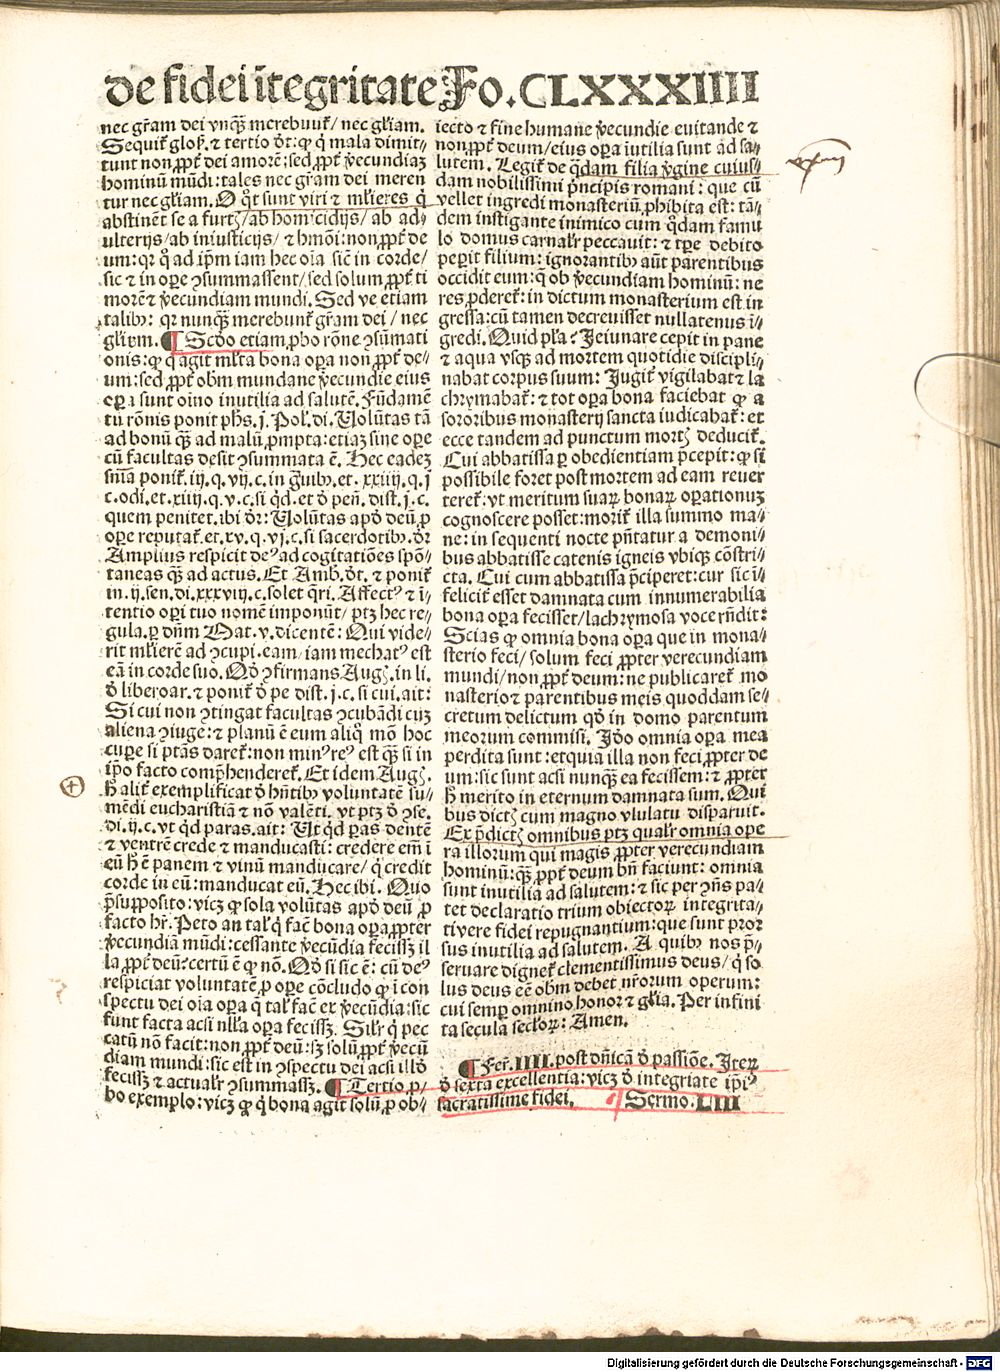 de fidei ītegritate Fo. CLXXXXIIII
nec gr̄am dei vnq̄ꝫ merebunt̄/ nec gl̄iam.
Sequit̄ glos̄. ⁊ tertio d̄t: ꝙ q̇ mala dimit⸗
tunt non ꝓpt̄ dei amorē: sed ꝓpt̄ v̄ecundiaꝫ
hominū mūdi: tales nec gr̄am dei meren
tur nec gl̄iam. O q̊t sunt viri ⁊ ml̄ieres q̇
abstinēt se a furtꝭ/ ab homicidijs/ ab ad⸗
ulterijs/ ab iniusticijs/ ⁊ hm̄oi: non ꝓpt̄ de
um: qꝛ q̊ ad ip̄m iam hec oīa sic̄ in corde/
sic ⁊ in oꝑe ꝯsummassent/ sed solum ꝓpt̄ ti
morē ⁊ v̄ecundiam mundi. Sed ve etiam
talibꝫ: qꝛ nunq̄ꝫ merebunt̄ gr̄am dei/ nec
gl̄iam. ¶ Scd̄o etiam ꝓbo rōne ꝯsūmati
onis: ꝙ q̇ agit ml̄ta bona oꝑa non ꝓpt̄ de⸗
um: sed ꝓpt̄ obm mundane v̄ecundie eius
oꝑa sunt oīno inutilia ad salutē. Fūdamē
tū rōnis ponit ph̄s. j. Pol̄. di. Volūtas tā
ad bonū q̄ꝫ ad malū ꝓmpta: etiaꝫ sine oꝑe
cū facultas desit ꝯsummata ē. Hec eadeꝫ
sn̄ia ponit̄. iij. q. vij. c. in g̃uibꝫ. et. xxiiij. q. j
c. odi. et. xiiij. q. v. c. si q̇d. et d̄ pen̄. dist. j. c.
quem penitet. ibi d̄r: Volūtas apd̄ deū ꝓ
oꝑe reputat̄. et. xv. q. vj. c. si sacerdotibꝫ. d̄r
Amplius respicit deꝰ ad cogitatiōes spō⸗
taneas q̄ꝫ ad actus. Et Amb. d̄t. ⁊ ponit̄
in. ij. sen. di. xxxviij. c. solet q̄ri. Affectꝰ ⁊ ī⸗
tentio oꝑi tuo nomē imponūt/ ptꝫ hec re⸗
gula. ꝑ dn̄m Mat. v. dicentē: Qui vide⸗
rit ml̄ierē ad ꝯcupi. eam/ iam mechatꝰ est
eā in corde suo. Qd̄ ꝯfirmans Augꝭ. in li.
d̄ liberoar. ⁊ ponit̄ d̄ pe dist. j. c. si cui. ait:
Si cui non ꝯtingat facultas ꝯcubādi cuꝫ
aliena ꝯiuge: ⁊ planū ē eum aliq̊ mō hoc
cuꝑe si ptās daret̄: non minꝰ reꝰ est q̄ꝫ si in
ip̄o facto comp̄henderet̄. Et idem Augꝭ.
h̄ alit̄ exemplificat d̄ hn̄tibꝫ voluntatē su⸗
mēdi eucharistiā ⁊ nō valēti. vt ptꝫ d̄ ꝯse.
di. ij. c. vt q̇d paras. ait: Vt q̇d ꝑas dentē
⁊ ventrē crede ⁊ manducasti: credere em̄ ī
eū h̄ ē panem ⁊ vinū manducare/ q̇ credit
corde in eū: manducat eū. Hec ibi. Quo
p̄supposito: vicꝫ ꝙ sola volūtas apd̄ deū ꝓ
facto hr̄. Peto an tal̄ q̇ fac̄ bona oꝑa ꝓpter
v̄ecundiā mūdi: cessante v̄ecūdia fecissꝫ il
la ꝓpt̄ deū: certū ē ꝙ nō. Qd̄ si sic ē: cū deꝰ
respiciat voluntatē ꝓ oꝑe cōcludo ꝙ ī con
spectu dei oīa oꝑa q̄ tal̄ fac̄ ex v̄ecūdia: sic
sunt facta acsi nl̄la oꝑa fecissꝫ. Sil̄r q̇ pec
catū nō facit: non ꝓpt̄ deū: sꝫ solū ꝓpt̄ v̄ecū
diam mundi: sic est in ꝯspectu dei acsi illd̄
fecissꝫ ⁊ actual̄r ꝯsummassꝫ. ¶ Tertio ꝓ⸗
bo exemplo: vicꝫ ꝙ q̇ bona agit solū ꝓ ob⸗
iecto ⁊ fine humane v̄ecundie euitande ⁊
non ꝓpt̄ deum/ eius oꝑa iutilia sunt ad sa⸗
lutem. Legit̄ de q̄dam filia v̄gine cuius⸗
dam nobilissimi p̄ncipis romani: que cū
vellet ingredi monasteriū ꝓhibita est: tā⸗
dem instigante inimico cum q̊dam famu
lo domus carnal̄r peccauit: ⁊ tꝑe debito
peꝑit filium: ignorantibꝫ aūt parentibus
occidit eum: q̇ ob v̄ecundiam hominū: ne
res ꝓderet̄: in dictum monasterium est in
gressa: cū tamen decreuisset nullatenus ī⸗
gredi. Quid pl̄a? Ieiunare cepit in pane
⁊ aqua vsqꝫ ad mortem quotidie discipli⸗
nabat corpus suum: Jugit̄ vigilabat ⁊ la
chrymabat̄: ⁊ tot oꝑa bona faciebat ꝙ a
sororibus monasterij sancta iudicabat̄: et
ecce tandem ad punctum mortꝭ deducit̄.
Cui abbatissa ꝑ obedientiam p̄cepit: ꝙ si
possibile foret post mortem ad eam reuer
teret̄: vt meritum suaꝝ bonaꝝ oꝑationuꝫ
cognoscere posset: morit̄ illa summo ma⸗
ne: in sequenti nocte pn̄tatur a demoni⸗
bus abbatisse catenis igneis vbiqꝫ cōstri⸗
cta. Cui cum abbatissa p̄ciperet: cur sic ī⸗
felicit̄ esset damnata cum innumerabilia
bona oꝑa fecisset/ lachrymosa voce rn̄dit:
Scias ꝙ omnia bona oꝑa que in mona⸗
sterio feci/ solum feci ꝓpter verecundiam
mundi/ non ꝓpt̄ deum: ne publicaret̄ mo
nasterio ⁊ parentibus meis quoddam se⸗
cretum delictum qd̄ in domo parentum
meorum commisi. Id̄o omnia oꝑa mea
perdita sunt: et quia illa non feci ꝓpter de
um: sic sunt acsi nunq̄ꝫ ea fecissem: ⁊ ꝓpter
h̄ merito in eternum damnata sum. Qui
bus dictꝭ cum magno vlulatu disparuit.
Ex p̄dictꝭ omnibus ptꝫ qual̄r omnia ope
ra illorum qui magis ꝓpter verecundiam
hominū: q̄ꝫ ꝓpt̄ deum bn̄ faciunt: omnia
sunt inutilia ad salutem: ⁊ sic per ꝯn̄s pa⸗
tet declaratio trium obiectoꝝ integrita⸗
tiue re fidei repugnantium: que sunt pror
sus inutilia ad salutem. A quibꝫ nos p̄⸗
seruare dignet̄ clementissimus deus/ q̇ so
lus deus eē obm debet nr̄orum operum:
cui semꝑ omnino honor ⁊ gl̄ia. Per infini
ta secula secl̄oꝝ: Amen.
¶ Fer̄. IIII. post dn̄icā d̄ passiōe. Iteꝝ
d̄ sexta excellentia: vicꝫ d̄ integriate ip̄iꝰ
sacratissime fidei. Sermo. LIII
Digitalisierung gefördert durch die Deutsche Forschungsgemeinschaft - DFG